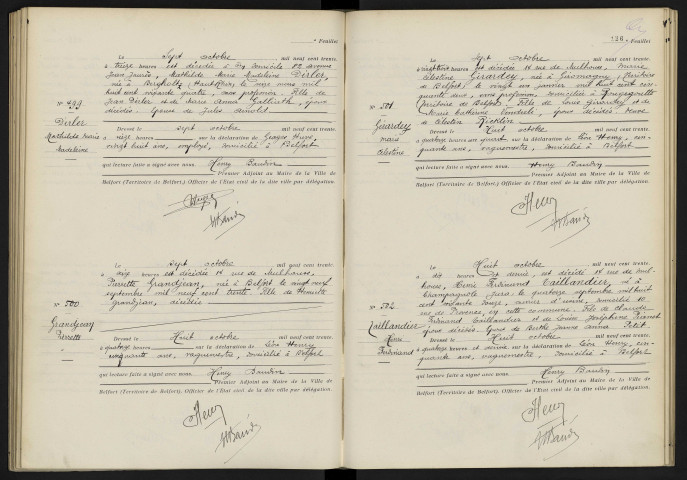 Feuillet
Le Sept octobre mil neuf cent trente.
à treize heures est décédée à son domicile 82 avenue
Jean Jaurès, Mathilde Marie Madeleine Dirler,
née à Bergholtz (Haut-Rhin) le onze mai mil
huit cent soixante quatre, sans profession. Fille de
Jean Dirler et de Marie Anna
décédés. Epouse de Jules
N° 499
Dirler
Mathilde Marie
Madeleine
Dressé le sept octobre mil neuf cent trente.
à seize heures sur la déclaration de Georges
vingt huit ans, employé, domicilié à Belfort
qui lecture faite a signé avec nous. Henry Baudin
Premier Adjoint au Maire de la Ville de
Belfort (Territoire de Belfort), Officier de l'Etat civil de la dite ville par délégation.
Le sept octobre mil neuf cent trente.
à dix heures est décédée 14 rue de Mulhouse,
Pierrette Grandjean, née à Belfort le vingt neuf
septembre mil neuf cent trente. Fille de Henriette
Grandjean,
N° 500
Grandjean
Pierrette
Dressé le Huit octobre mil neuf cent trente.
à quatorze heures sur la déclaration de Léon Henry
cinquante ans, vaguemestre, domicilié à Belfort
qui lecture faite a signé avec nous. Henry Baudin
Premier Adjoint au Maire de la Ville de
Belfort (Territoire de Belfort), Officier de l'Etat civil de la dite ville par délégation.
Henry
Feuillet
Le Sept octobre mil neuf cent trente.
à heures est décédée 14 rue de Mulhouse, Marie
Célestine Girardey, née à Giromagny (Territoire
de Belfort) le vingt un janvier mil huit cent cin-
quante deux, sans profession, domiciliée à Rougegoutte
(Territoire de Belfort). Fille de Louis Girardey et de
Marie Catherine époux décédés. Veuve
de Célestin Ricklin
N° 501
Girardey
Marie
Célestine
Dressé le Huit octobre mil neuf cent trente.
à quatorze heures sur la déclaration de Léon Henry, cin-
quante ans, vaguemestre, domicilié à Belfort
qui lecture faite a signé avec nous. Henry Baudin
Premier Adjoint au Maire de la Ville de
Belfort (Territoire de Belfort), Officier de l'Etat civil de la dite ville par délégation.
Henry
Le Huit octobre mil neuf cent trente.
à dix heures est décédé 14 rue de Mul-
house, Henri Ferdinand Taillandier, né à
Champagnole Jura le quatorze septembre mil huit
cent soixante douze, d'usine, domicilié 10
rue de en cette commune. Fils de
Ferdinand Taillandier et de Louise Joséphine
époux décédés. Epoux de Berthe Petit
N° 502
Taillandier
Henri
Ferdinand
Dressé le Huit octobre mil neuf cent trente.
à quatorze heures sur la déclaration de Léon Henry, cin-
quante ans, vaguemestre, domicilié à Belfort
qui lecture faite a signé avec nous. Henry Baudin
Premier Adjoint au Maire de la Ville de
Belfort (Territoire de Belfort), Officier de l'Etat civil de la dite ville par délégation.
Henry